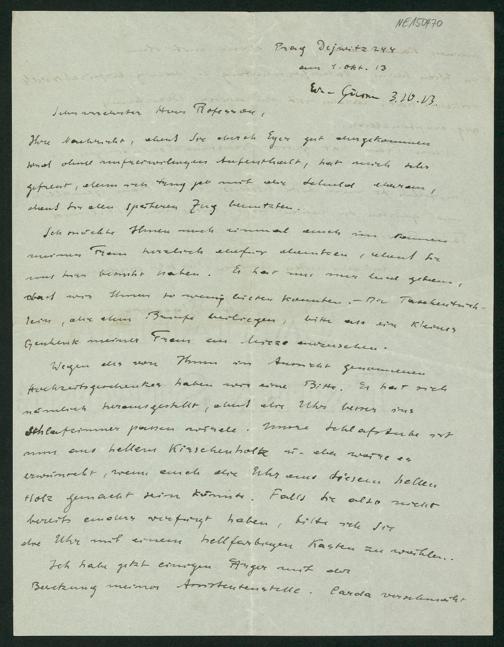 NE150470
Prag Dejwitz 244
am 1. Okt. 13
3.10.13.
Sehr verehrter Herr Professor,
Ihre Nachricht, dass Sie durch Eger gut durchgekommen
sind ohne unfreiwilligen Aufenthalt, hat mich sehr
gefreut, denn ich trug ja mit die Schuld daran,
dass Sie den späteren Zug benutzten.
Ich möchte Ihnen noch einmal auch im Namen
meiner Frau herzlich dafür danken, dass Sie
uns hier besucht haben. Es hat uns nur leid getan,
dass wir Ihnen so wenig bieten konnten. - Die Taschentüch-
lein, die dem Briefe beiliegen, bitte als ein kleines
Geschenk meiner Frau an anzusehen.
Wegen des von Ihnen in Aussicht genommenen
Hochzeitsgeschenkes haben wir eine Bitte. Es hat sich
nämlich herausgestellt, dass die Uhr besser ins
Schlafzimmer passen würde. Unsere Schlafstube ist
nun aus hellem Kirschenholz u. da wäre es
erwünscht, wenn auch die Uhr aus diesem hellen
Holz gemacht sein könnte. Falls Sie also nicht
bereits anders verfügt haben, bitte ich Sie
die Uhr mit einem hellfarbigen Kasten zu wählen.
Ich habe jetzt einigen Ärger mit der
Besetzung meiner Assistentenstelle.